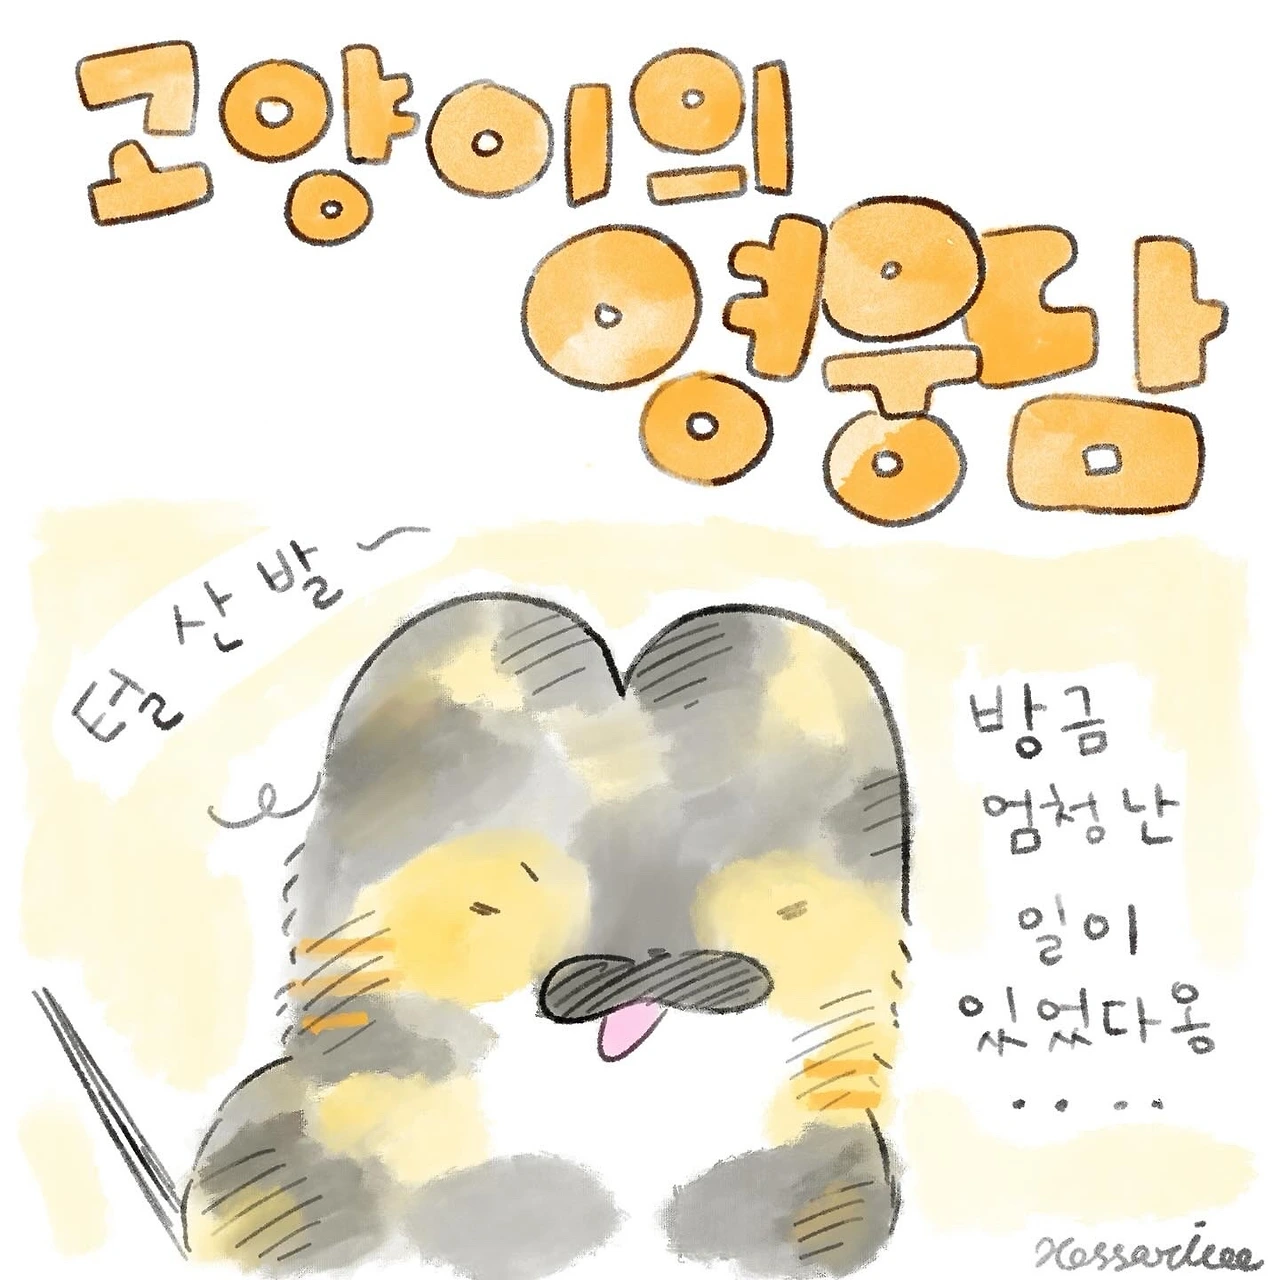 고양이의
영웅담
털 산발~
방금
엄청난
일이
있었다옹
....